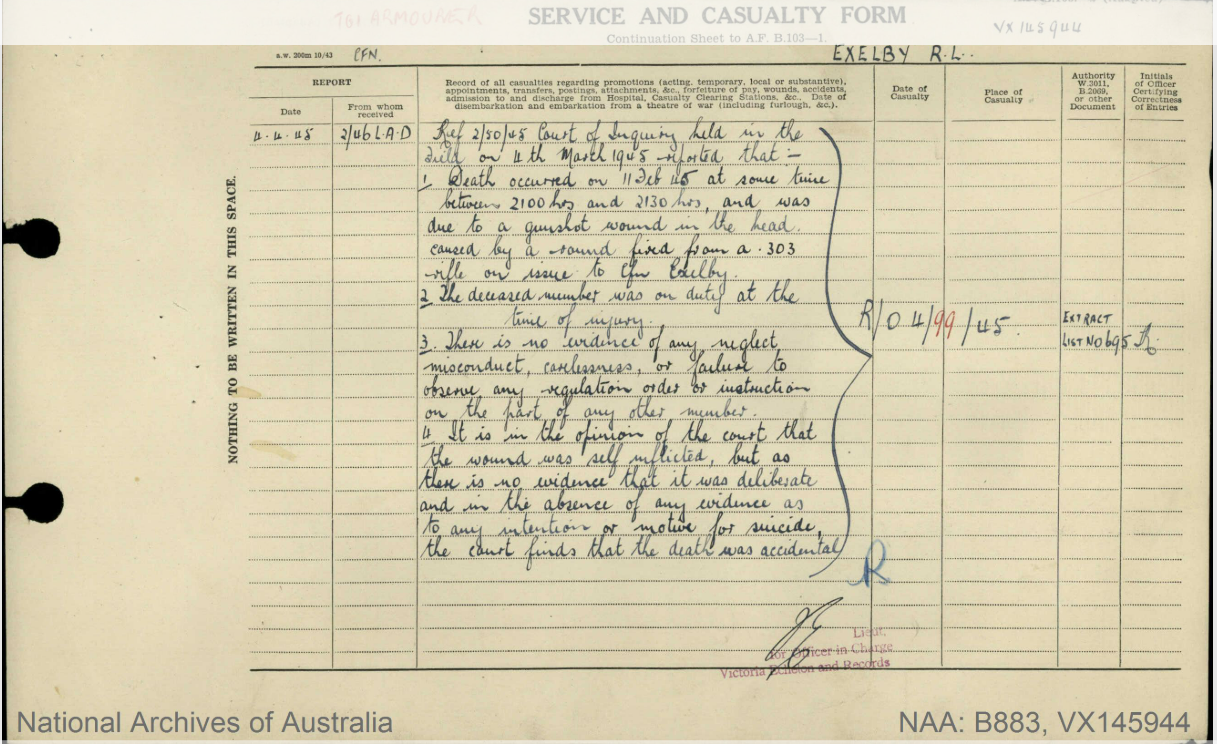 TGI ARMOURER
SERVICE AND CASUALTY FORM
Continuation Sheet to A.F. B.103—1.
VX 145944
s.w. 200m 10/43 CFN. EXELBY R.L.
REPORT
Date
From whom received
Record of all casualties regarding promotions (acting, temporary, local or substantive),
appointments, transfers, postings, attachments, &c., forfeiture of pay, wounds, accidents,
admission to and discharge from Hospital, Casualty Clearing Stations, &c. Date of
disembarkation and embarkation from a theatre of war (including furlough, &c.).
Date of Casualty
Place of Casualty
Authority W.3011, B.2069, or other Document
Initials of Officer Certifying Correctness of Entries
NOTHING TO BE WRITTEN IN THIS SPACE.
4.4.45 2/46 L.A.D Ref 2/50/45 Court of Inquiry held in the
Field on 4th March 1945 reported that :-
1. Death occurred on 11 Feb 45 at some time
between 2100 hrs and 2130 hrs, and was
due to a gunshot wound in the head.
caused by a round fired from a .303
rifle on issue to Cfn Exelby.
2 The deceased member was on duty at the
time of injury.
R/O 4/99/45
EXTRACT
LIST NO 695
3. There is no evidence of any neglect
misconduct, carelessness, or failure to
observe any regulation order or instruction
on the part of any other member.
4 It is in the opinion of the court that
the wound was self inflicted, but as
there is no evidence that it was deliberate
and in the absence of any evidence as
to any intention or motive for suicide,
the court finds that the death was accidental
R
Lieut.
for Officer in Charge
Victoria Echelon and Records
National Archives of Australia
NAA: B883, VX145944